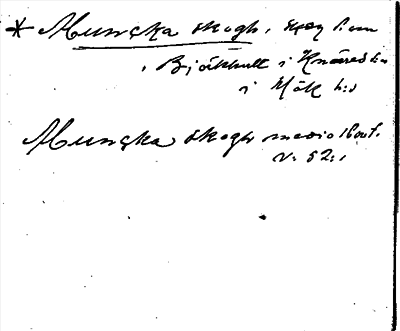 * Muncka skogh,
i Björkhult i Knäreds sn
i Hök h:d
Muncka skogh medio 16 out.
v. 52.,